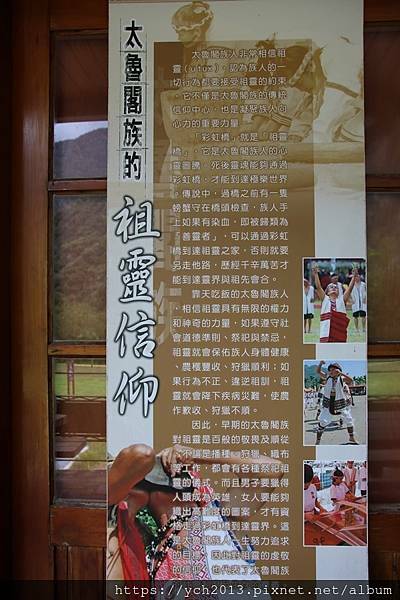 太魯閣族的
祖靈信仰
太魯閣族人非常相信祖
靈（utux），認為族人的一
切行為都要接受祖靈的約束
，它不僅是太魯閣族的傳統
信仰中心，也是凝聚族人向
心力的重要力量。
「彩虹橋」就是「祖靈
橋」，它是太魯閣族人的心
靈圖騰，死後靈魂能夠通過
彩虹橋，才能到達極樂世界
。傳說中，過橋之前有一隻
螃蟹守在橋頭檢查，族人手
上如果有染血，即被歸類為
「善靈者」，可以通過彩虹
橋到達祖靈之家，否則就要
另走他路，歷經千辛萬苦才
能到達靈界與祖先會合。
靠天吃飯的太魯閣族人
，相信祖靈具有無限的權力
和神奇的力量，如果遵守社
會道德準則、祭祀與禁忌，
祖靈就會保佑族人身體健康
、農穫豐收、狩獵順利；如
果行為不正、違逆祖訓，祖
靈就會降下疾病災難，使農
作歉收、狩獵不順。
因此，早期的太魯閣族
對祖靈是百般的敬畏及順從
，不論是播種、狩獵、織布
等工作，都會有各種祭祀祖
靈的儀式。而且男子要獵得
人頭成為英雄，女人要能夠
織出高難度的圖案，才有資
格走過彩虹橋到達靈界。這
是太魯閣族人一生努力追求
的目標，因此對祖靈的虔敬
的信仰，也代表了太魯閣族
https://ych2013.pixnet.net/album